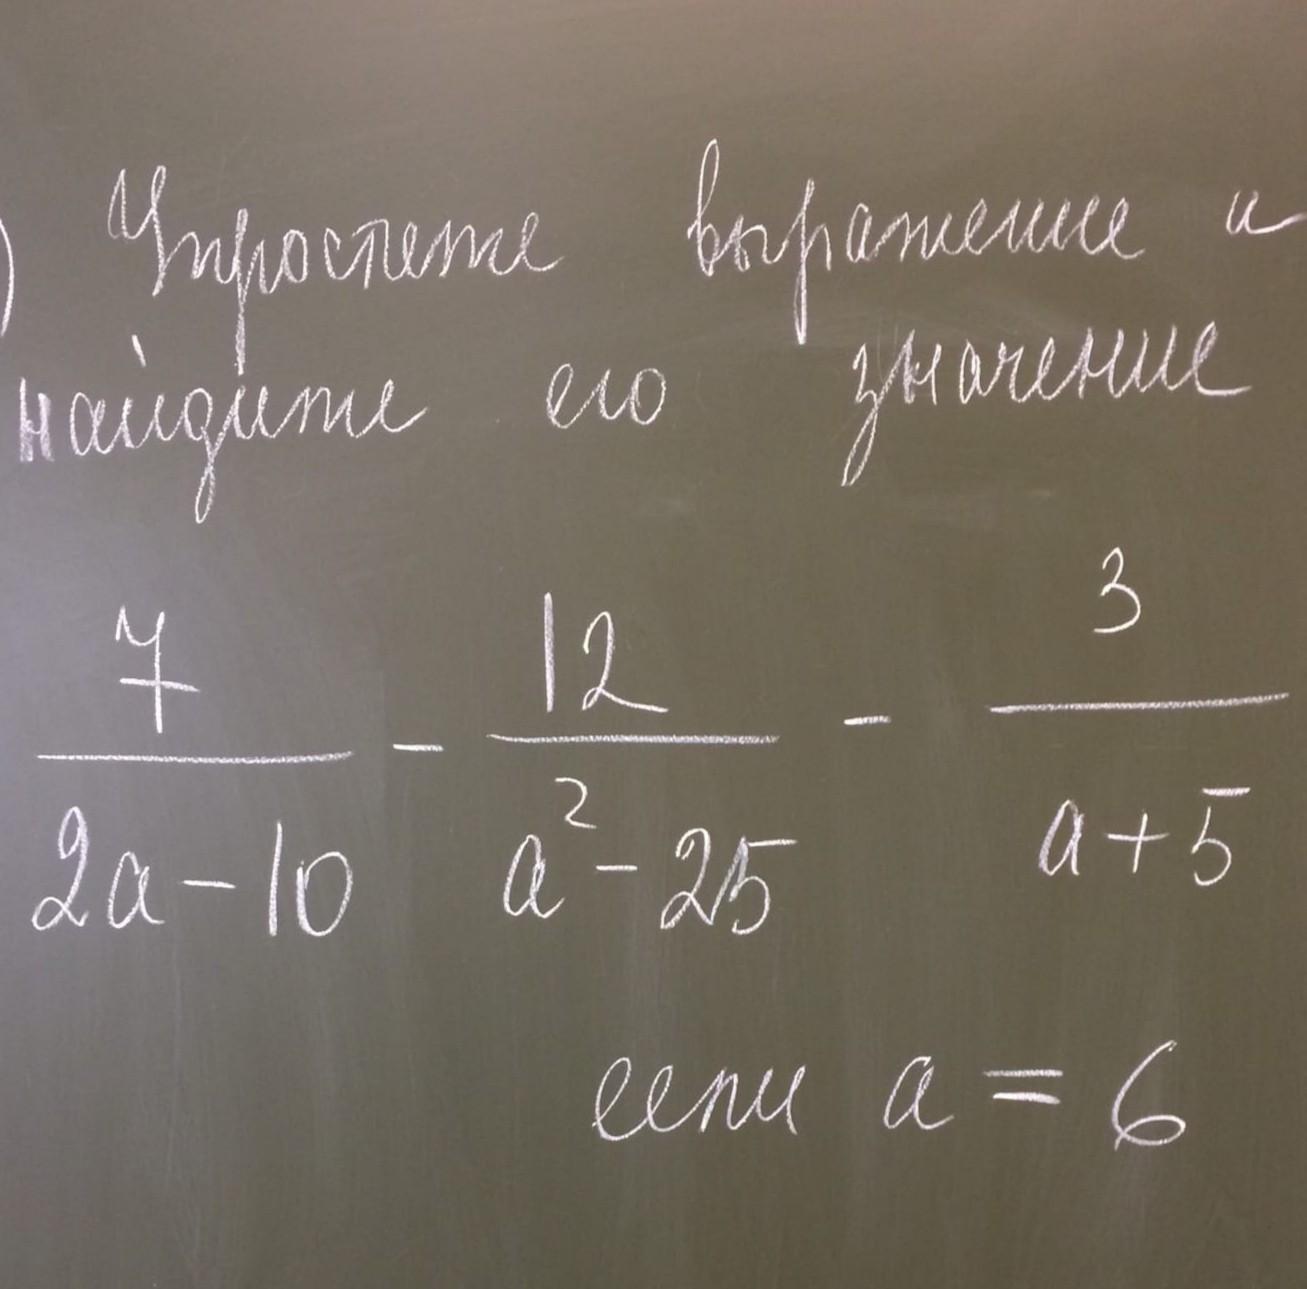 ) Упростите выражение и
найдите его значение
7/(2a-10) - 12/(a²-25) - 3/(a+5)
если a = 6